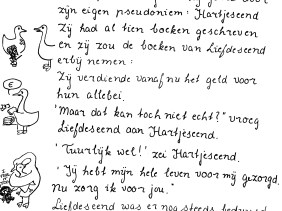 zijn eigen pseudoniem: Hartjeseend
Zij had al tien boeken geschreven
en zij zou de boeken van Liefdeseend
erbij nemen.
Zij verdiende vanaf nu het geld voor
hun allebei.
'Maar dat kan toch niet echt?' vroeg
Liefdeseend aan Hartjeseend.
'Tuurlijk wel!' zei Hartjeseend.
'Jij hebt mijn hele leven voor mij gezorgd.
Nu zorg ik voor jou.'
Liefdeseend was er nog steeds